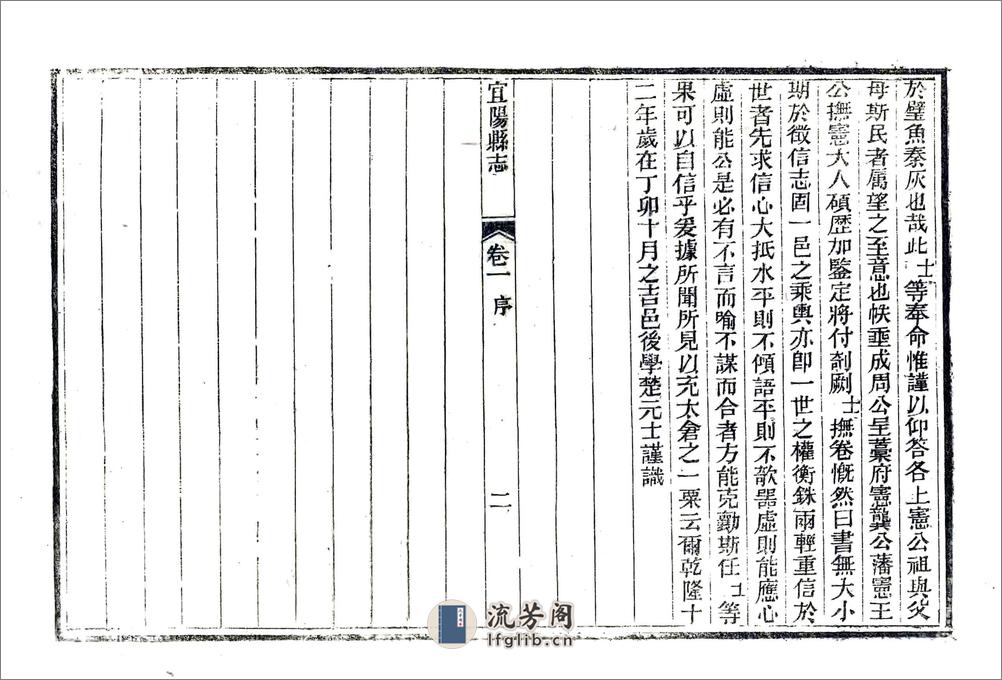 於壁魚秦灰也哉此士等奉命惟謹以仰答各上憲公祖與父
母斯民者属望之至意也帙垂成周公呈藁府憲龔公藩憲王
公撫憲大人碩歷加鑒定將付剞劂士撫卷慨然曰書無大小
期於徵信志固一邑之乘輿亦卽一世之權衡銖兩輕重信於
世者先求信心大抵水平則不傾語平則不欹器虛則能應心
虛則能公是必有不言而喻不謀而合者方能克勷斯任士等
果可以自信乎爰據所聞所見以充太倉之一粟云爾乾隆十
二年歲在丁卯十月之吉邑後學楚元士謹識
宜陽縣志
卷一
序
二
流芳阁
lfglib.cn